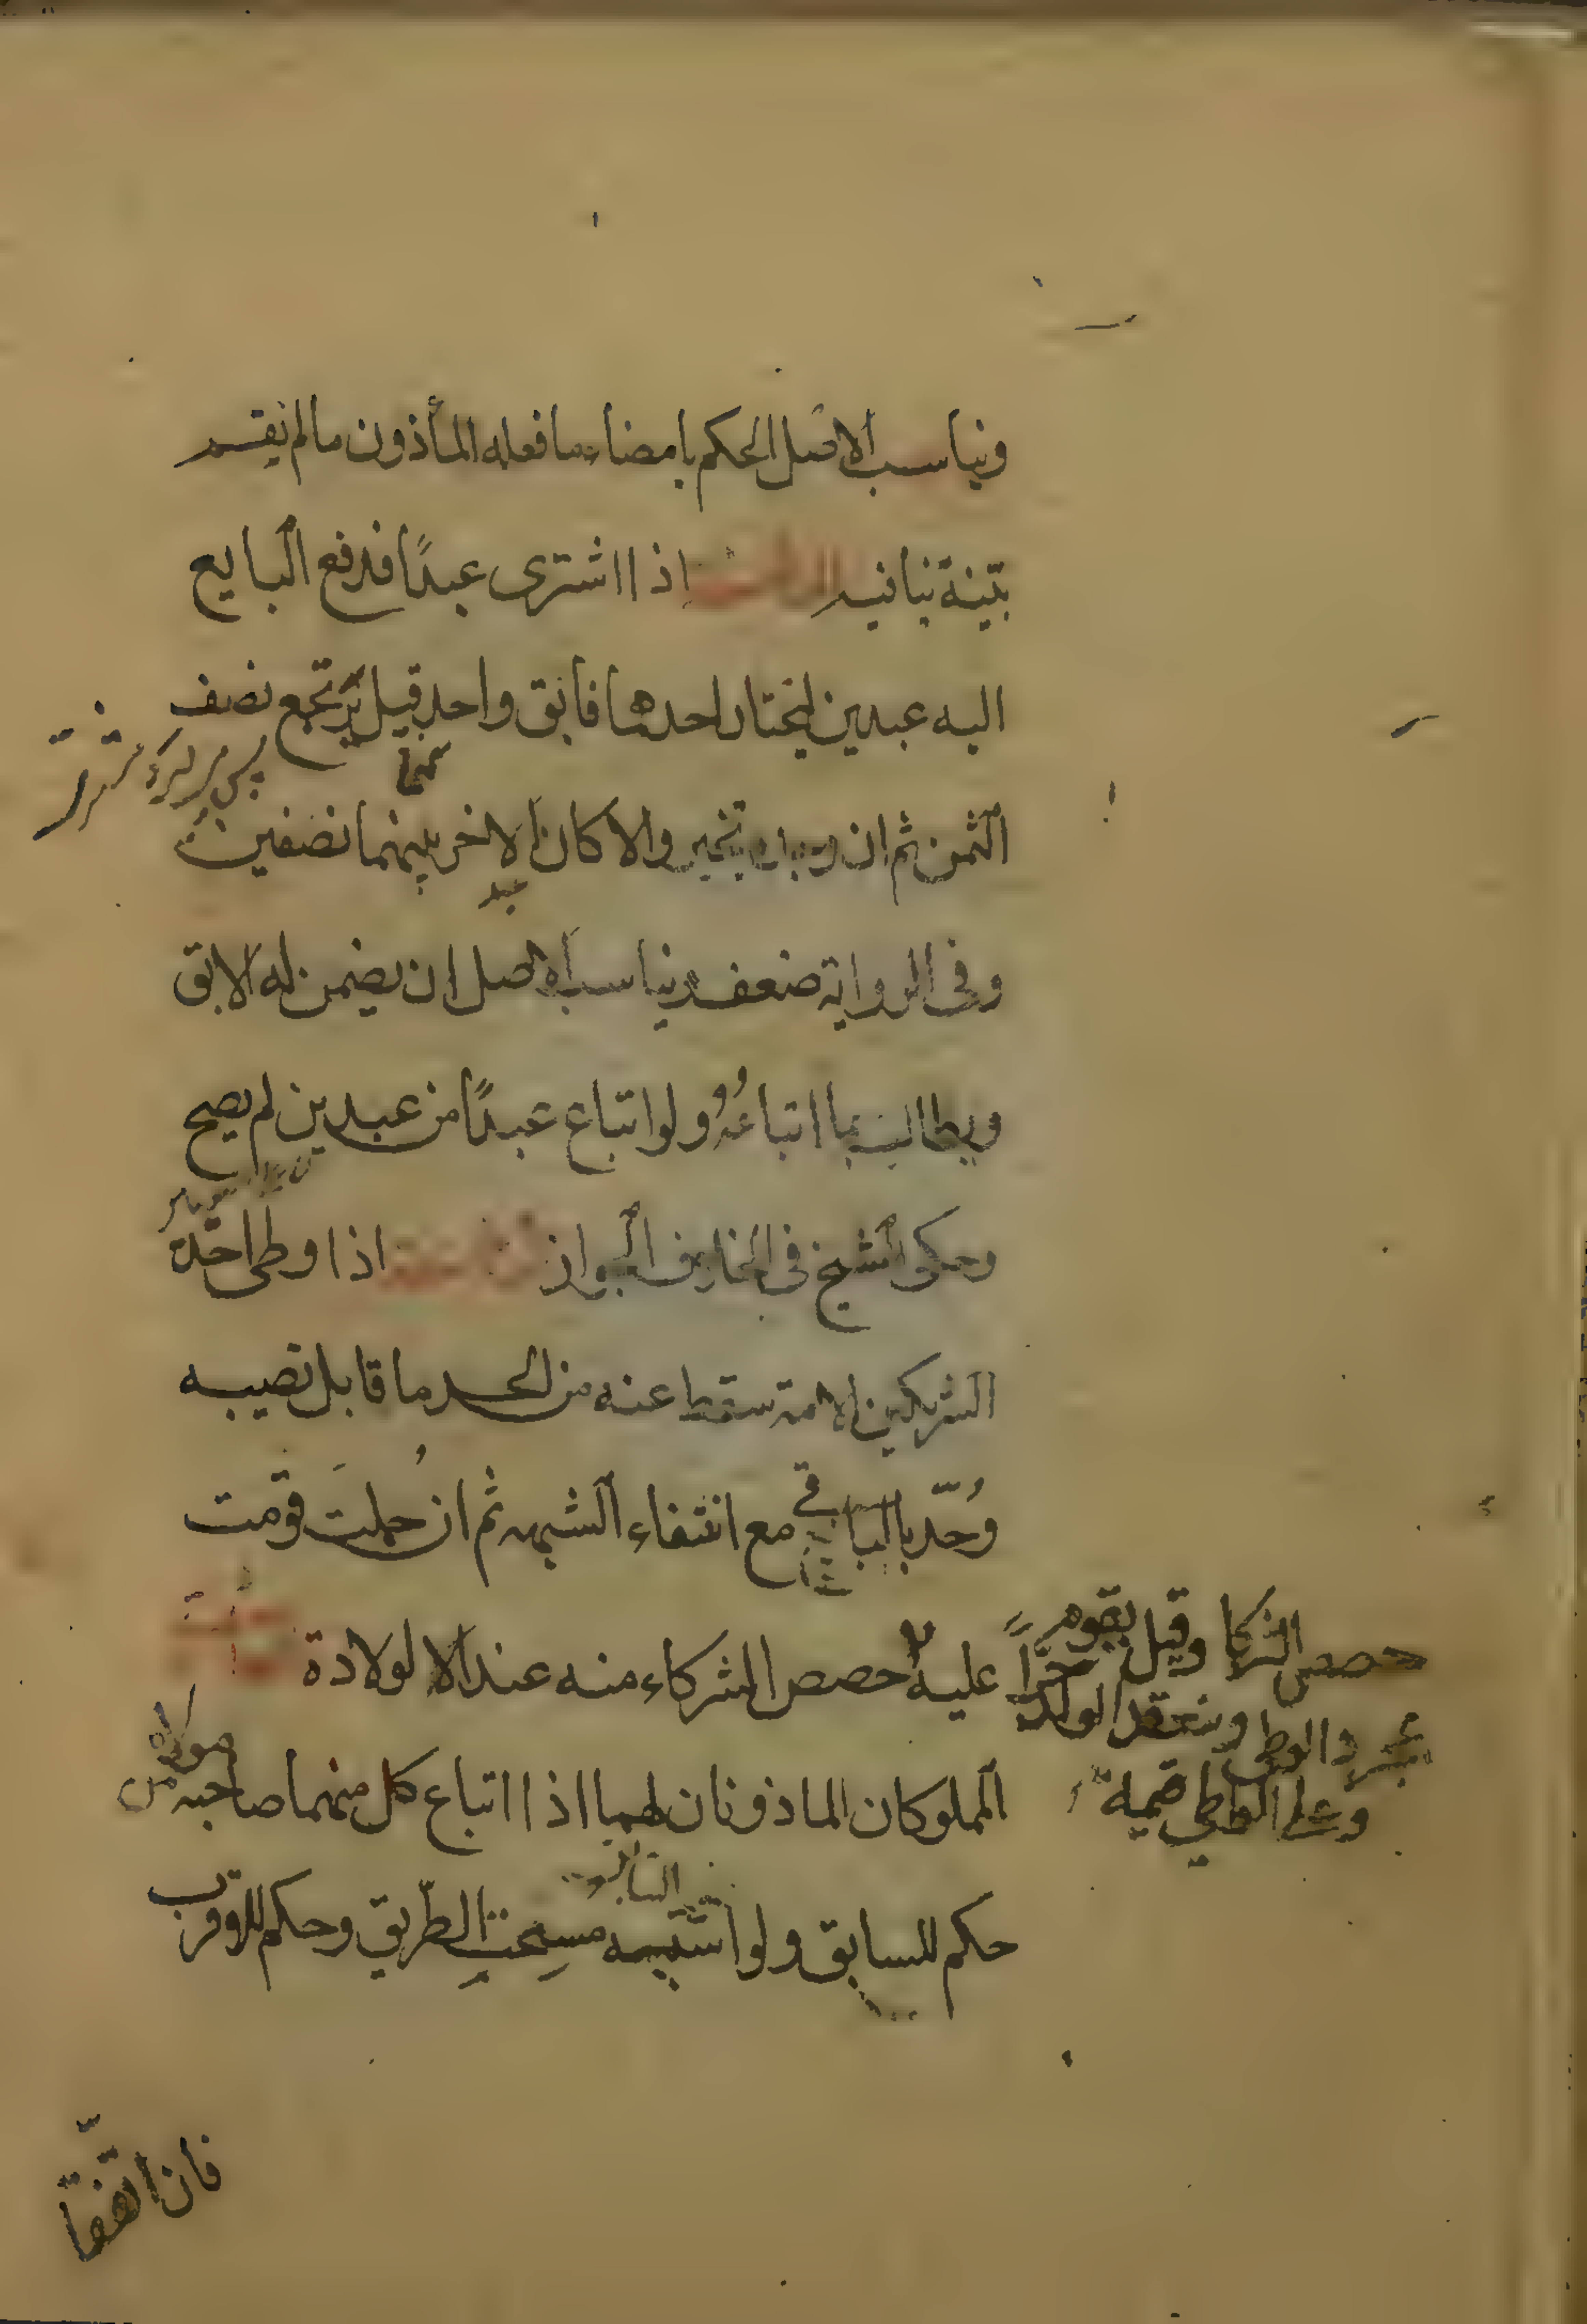 ويناسب الاصل الحكم بامضاء ما فعله المأذون ما لم يقم
بينة تنافيه الرابعة اذا اشترى عبدًا فدفع البايع
اليه عبدين ليختار احدهما فابق واحد قيل يرتجع نصف
منهما
الثمن ثم ان وجده تخير والا كان الاخر بينهما نصفين
وفى الرواية ضعف ويناسب الاصل ان يضمن له الابق
ويطالب بما ابتاعه ولو ابتاع عبدًا من عبدين لم يصح
وحكى الشيخ فى الخلاف الجواز الخامسة اذا وطى احد
الشريكين الامة سقط عنه من الحد ما قابل نصيبه
وحد بالباقي مع انتفاء الشبهه ثم ان حملت قومت
عليه حصص الشركاء منه عند الولادة
حصص الشركا وقيل يقوم
بمجرد الوطى وينعقد الولد حرًّا
وعلى الواطى قيمة
المملوكان الماذونان لهما اذا ابتاع كل منهما صاحبه
مولاه
حكم للسابق ولو اشتبه مسحت الطريق وحكم للاقرب
فان اتفقا